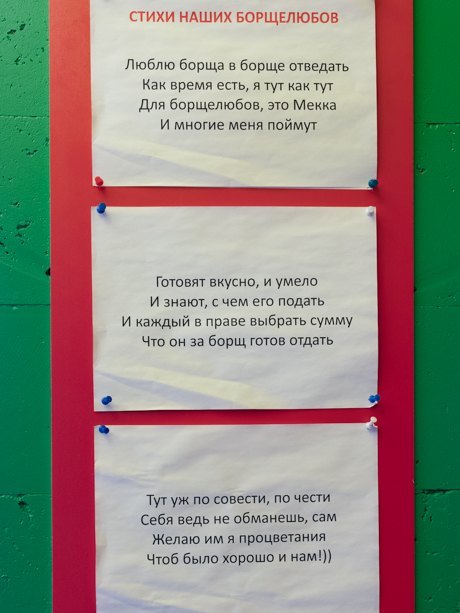 СТИХИ НАШИХ БОРЩЕЛЮБОВ
Люблю борща в борще отведать
Как время есть, я тут как тут
Для борщелюбов, это Мекка
И многие меня поймут
Готовят вкусно, и умело
И знают, с чем его подать
И каждый в праве выбрать сумму
Что он за борщ готов отдать
Тут уж по совести, по чести
Себя ведь не обманешь, сам
Желаю им я процветания
Чтоб было хорошо и нам!))